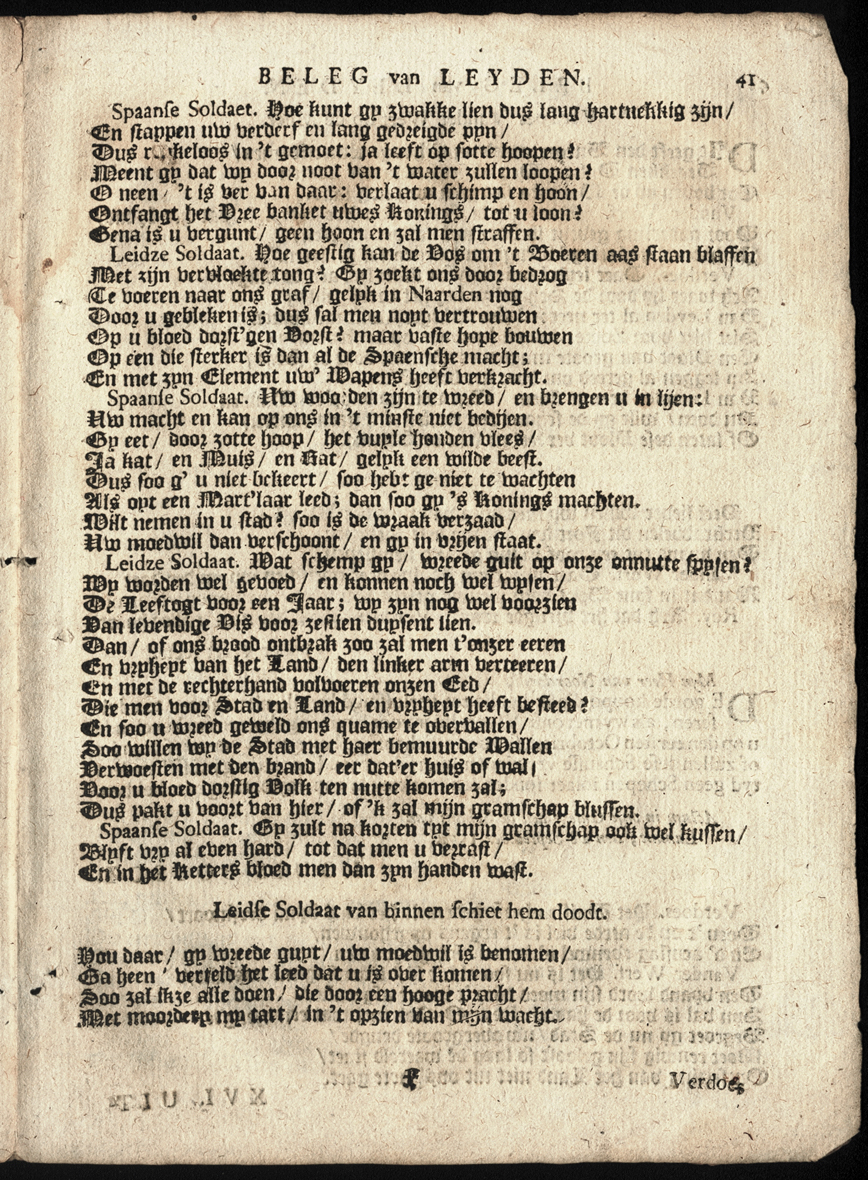 BELEG van LEYDEN. 41
Spaanse Soldaet. Hoe kunt gy zwakke lien dus lang hartnekkig zijn/
En stappen uw verderf en lang gedreigde pyn/
Dus r..keloos in 't gemoet: ja leeft op sotte hoopen?
Meent gy dat wy door noot van 't water zullen loopen?
O neen/ 't is ver van daar: verlaat u schimp en hoon/
Ontfangt het Vree banket uwes Konings/ tot u loon?
Gena is u vergunt/ geen hoon en zal men straffen.
Leidze Soldaat. Hoe geestig kan de Vos om 't Boeren aas staan blaffen
Met zijn vervloekte tong? Gy zoekt ons door bedrog
Te voeren naar ons graf/ gelyk in Naarden nog
Door u gebleken is; dus sal men noyt vertrouwen
Op u bloed dorst'gen Vorst? maar vaste hope bouwen
Op een die sterker is dan al de Spaensche macht;
En met zyn Element uw' Wapens heeft verkracht.
Spaanse Soldaat. Uw woorden zijn te wreed/ en brengen u in lijen:
Uw macht en kan op ons in 't minste niet bedijen.
Gy eet/ door zotte hoop/ het vuyle honden vlees/
Ja kat/ en Muis/ en Rat/ gelyk een wilde beest.
Dus soo g' u niet bekeert/ soo hebt ge niet te wachten
Als oyt een Mart'laar leed; dan soo gy 's Konings machten.
Wilt nemen in u stad? soo is de wraak verzaad/
Uw moedwil dan verschoont/ en gy in vrijen staat.
Leidze Soldaat. Wat schemp gy/ wreede guit op onze onnutte spysen?
Wy worden wel gevoed/ en konnen noch wel wysen/
De Leeftogt voor een Jaar; wy zyn nog wel voorzien
Van levendige Vis voor zestien duysent lien.
Dan/ of ons brood ontbrak zoo zal men t'onzer eeren
En vryheyt van het Land/ den linker arm verteeren/
En met de rechterhand volvoeren onzen Eed/
Die men voor Stad en Land/ en vryheyt heeft besteed?
En soo u wreed geweld ons quame te overvallen/
Soo willen wy de Stad met haer bemuurde Wallen
Verwoesten met den brand/ eer dat'er huis of wal/
Voor u bloed dorstig Volk ten nutte komen zal;
Dus pakt u voort van hier/ of 'k zal mijn gramschap blussen.
Spaanse Soldaat. Gy zult na korten tyt mijn gramschap ook wel kussen/
Blyft vry al even hard/ tot dat men u verrast/
En in het Ketters bloed men dan zyn handen wast.
Leidse Soldaat van binnen schiet hem doodt.
Hou daar/ gy wreede guyt/ uw moedwil is benomen/
Ga heen/ verteld het leed dat u is over komen/
Soo zal ikze alle doen/ die door een hooge pracht/
Met moordery my tart/ in 't opzien van mijn wacht.
F Verdoe